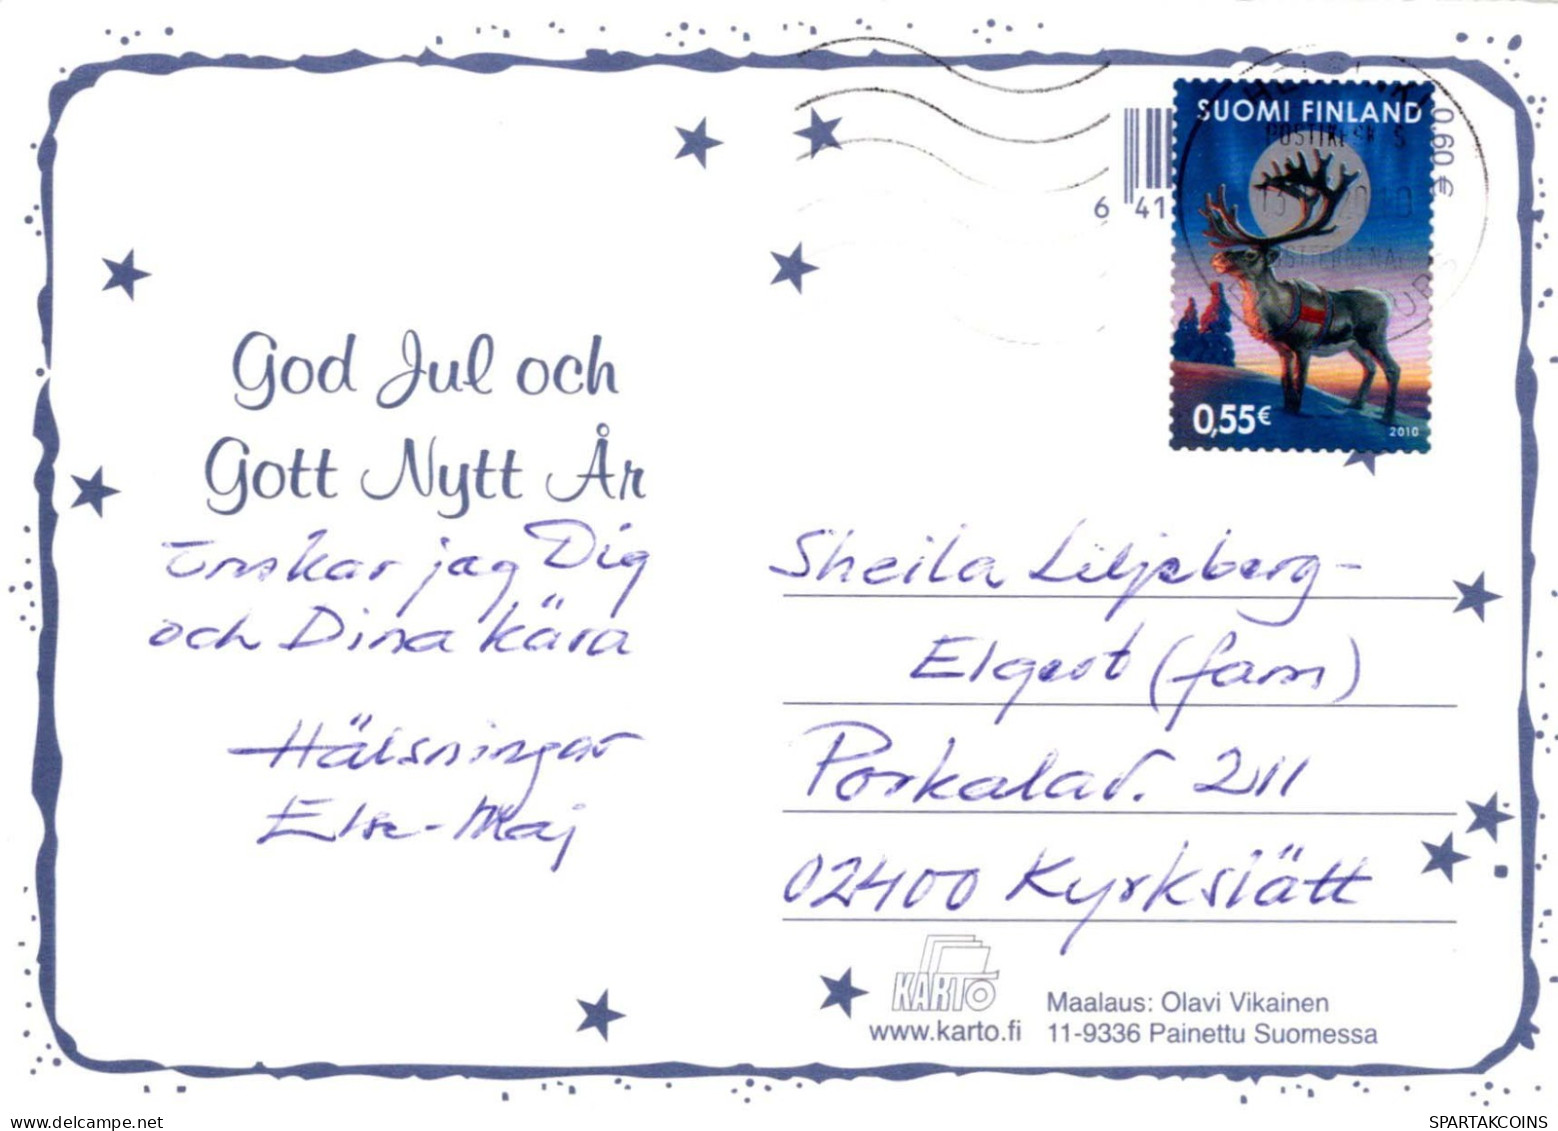 SUOMI FINLAND
HELSINKI
0,60 €
6 41
0,55€
2010
God Jul och
Gott Nytt År
önskar jag Dig
och Dina kära
Hälsningar
Else-Maj
Sheila Liljeberg-
Elgert (fam)
Porkalav. 211
02400 Kyrkslätt
KARTO
www.karto.fi
Maalaus: Olavi Vikainen
11-9336 Painettu Suomessa
delcampe.net
SPARTAKCOINS